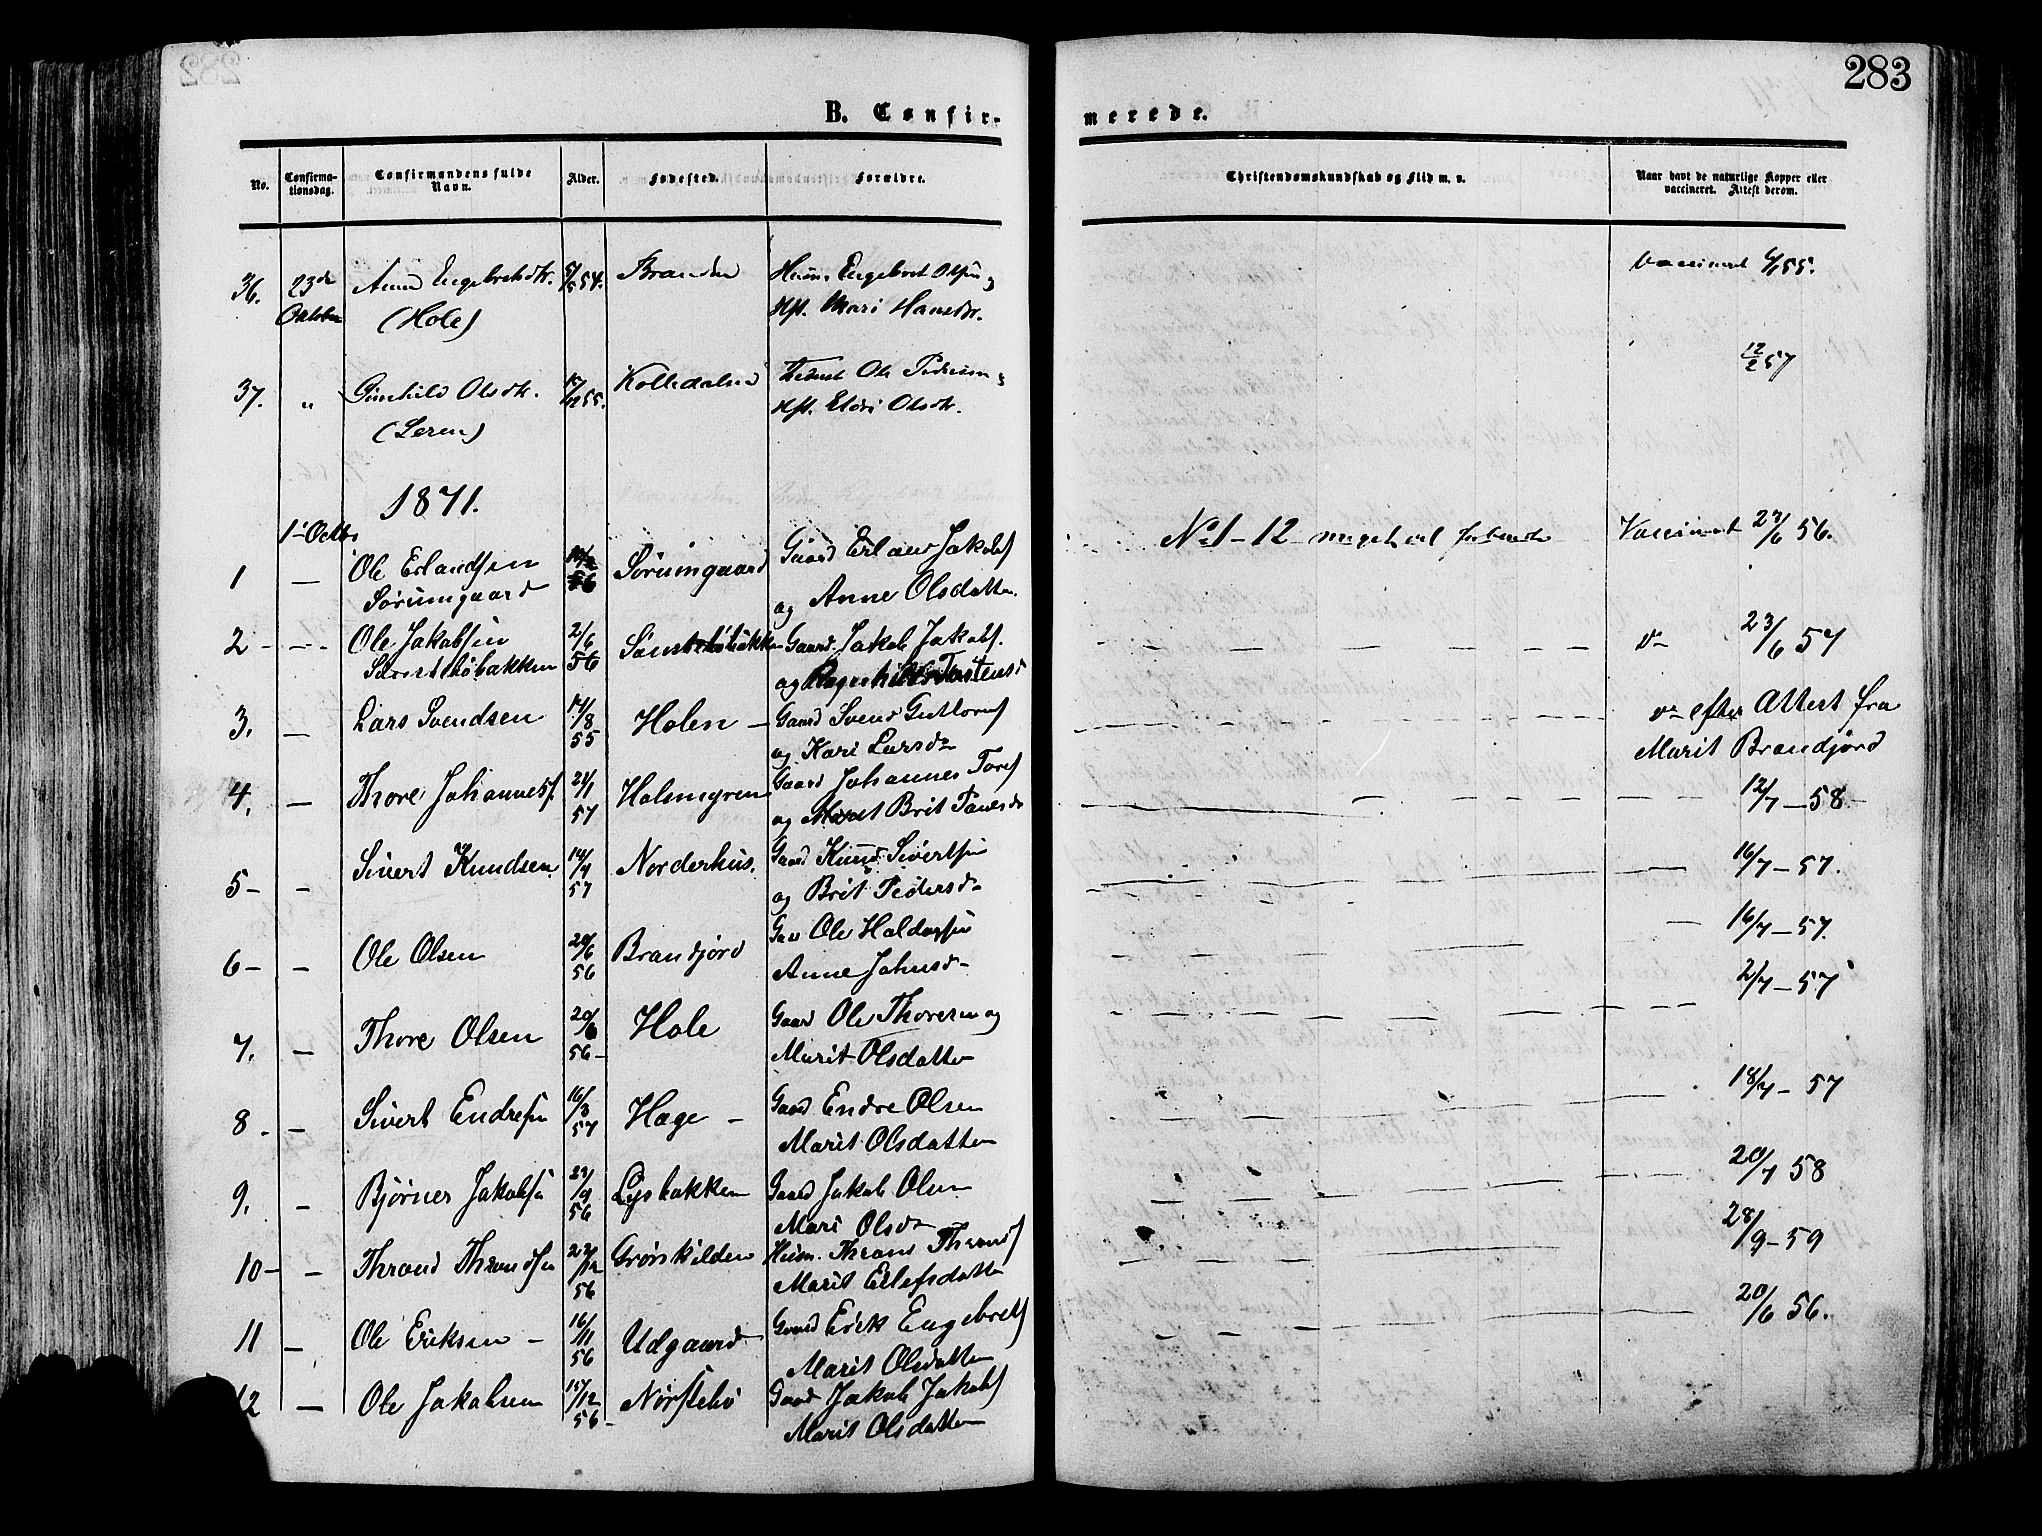 283
B. Confir-
merede.
No.
Confirma-
tionsdag.
Confirmandens fulde
Navn.
Alder.
Fødested.
Forældre.
Christendomskundskab og Flid m. v.
Naar havt de naturlige Kopper eller
vaccineret. Attest derom.
36. 23de Anne Engebretsdtr. 54. Branden Huusm. Engebret Olsen og vaccineret 55.
Oktober (Hole) Hst. Mari Hansdtr.
37. " Gunhild Olsdtr. 17/12 55. Kolledalen Ole Pedersen og 12/2 57
(Leren) Hst. Eldri Olsdtr.
1871.
1ste Octbr
1 — Ole Erlandsen 56 Sørumgaard Gaard Erland Jakobs No 1 - 12 meget vel forberedte Vaccineret 23/6 56.
Sørumgaard og Anne Olsdatter.
2 - -- Ole Jakobsen 2/6 56 Sandebøbakken Gaard. Jakob Jakobs. v- 23/6 57
Sandebøbakken og Ragnhild Torstensd
3. — Lars Svendsen 14/8 55 Holen — Gaard Svend Guttorms v- efter Attest fra
og Kari Larsd- Marit Brandjord
4. — Thore Johanness. 21/1 57 Holmgren Gaard Johannes Tores 12/7 — 58 —
og Marit Brit
5 - - Sivert Knudsen 14/4 57 Norderhus. Gaard Knud Sivertsen 16/7 — 57.
og Brit Pedersd-
6 - - Ole Olsen 20/6 56 Brandjord Gaar Ole Haldorsen 16/7 — 57.
Anne Johnsd-
7. — Thore Olsen 20/6 56 — Hole Gaard Ole Thoresen og 2/7 — 57
Marit Olsdatter
8 - - Sivert Endresen 16/3 57 Hage - Gaard Endre Olsen 18/7 — 57
Marit Olsdatter
9. - Bjørner Jakobsen 23/9 56 Lysbakken Gaard Jakob Olsen 20/7 58
Mari Olsd-
10 - - Thrond Throndsen 22/12 56 Grønskilden Husm. Thrond Thronds 28/9 — 59
Marit Ellefsdatter
11 — Ole Eriksen - 16/11 56 Udgaard Gaard Erik Engebrets 20/6 56.
Marit Olsdatter
12 — Ole Jakobsen 15/12 56 - Nørstebø Gaard Jakob Jakobs
Marit Olsdatter